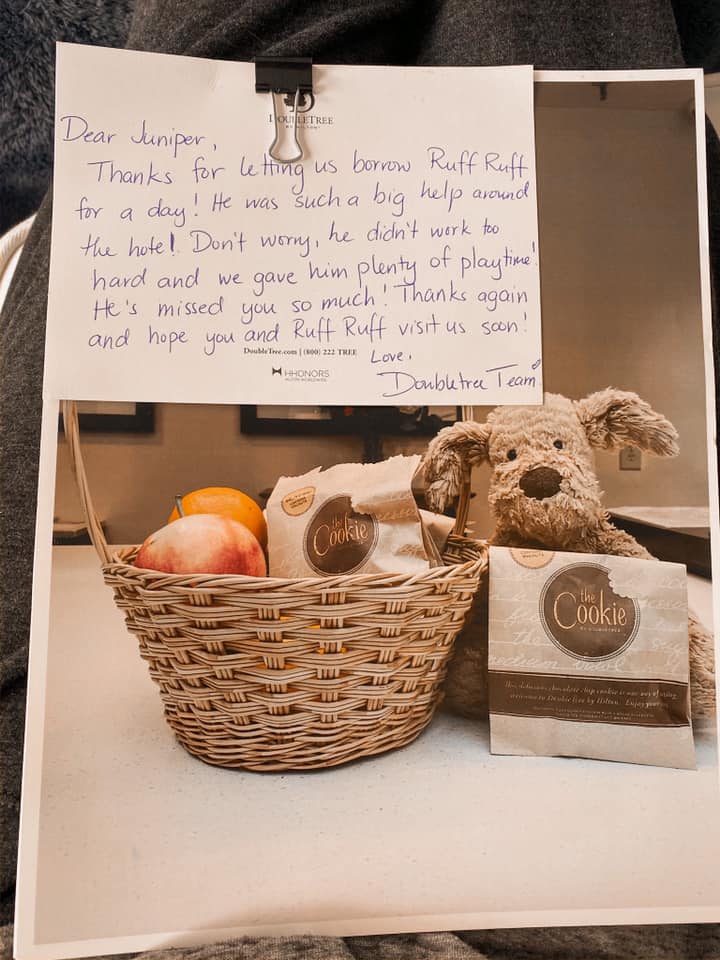 DOUBLETREE
BY HILTON
Dear Juniper,
Thanks for letting us borrow Ruff Ruff
for a day! He was such a big help around
the hotel. Don't worry, he didn't work too
hard and we gave him plenty of playtime!
He's missed you so much! Thanks again
and hope you and Ruff Ruff visit us soon!
DoubleTree.com | (800) 222 TREE
Love,
HHONORS
HILTON WORLDWIDE
Doubletree Team
the
Cookie
the
Cookie
BY DOUBLETREE
the
medium bowl
This delicious chocolate chip cookie is our way of saying
welcome to DoubleTree by Hilton. Enjoy your stay.